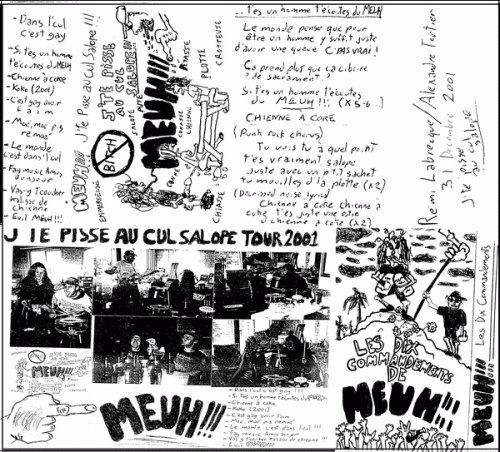 - Dans l'cul
c'est gay
- Si t'es un homme
t'écoutes du MEUH
- Chienne à core
- Koko (2001)
- C'est gay avoir
Faim
- Moé, moé pis
re moé
- Le monde
c'est dans l'cul!
- Fag music Amos
bonjour
- Va s'y Toucher
Chienne
- Evil MEUH!!!
MEUH!!! J'te Pisse au Cul Salope!!!
J'TE PISSE
AU CUL
SALOPE!!!
MEUH!!!
BITCH
PLOTTE
CROTTEUSE
CHIENNE
...t'es un homme t'écoutes du MEUH
Le monde pense que pour
être un homme y suffit juste
d'avoir une queue C'PAS VRAI!
Ça prend plus que ça ciboire
de sacrament?
Si t'es un homme t'écoutes
du MEUH!!! (X 5-6...)
CHIENNE À CORE
(Punk rock chorus)
Tu vois tu à quel point
t'es vraiment salope
Juste avec un p'tit sachet
tu mouilles d'la plotte (x2)
Chienne à core chienne à
core, t'es juste une
chienne à core (x2)
Rémi Labrecque/Alexandre Tertier
3 Décembre 2001
J'te pisse
au cul
salope
J'TE PISSE AU CUL SALOPE TOUR 2001
MEUH!!!
- Dans l'cul c'est gay!!!
- Si t'es un homme t'écoutes du
- Chienne à core
- Koko (2001)
- C'est gay avoir faim
- Moé, moé pis remoé
- Le monde c'est dans l'cul!
- Fag music Amos bonjour
- Va s'y Toucher
- Evil
LES DIX
COMMANDEMENTS
DE
MEUH!!!
Les Dix Commandements
MEUH!!!